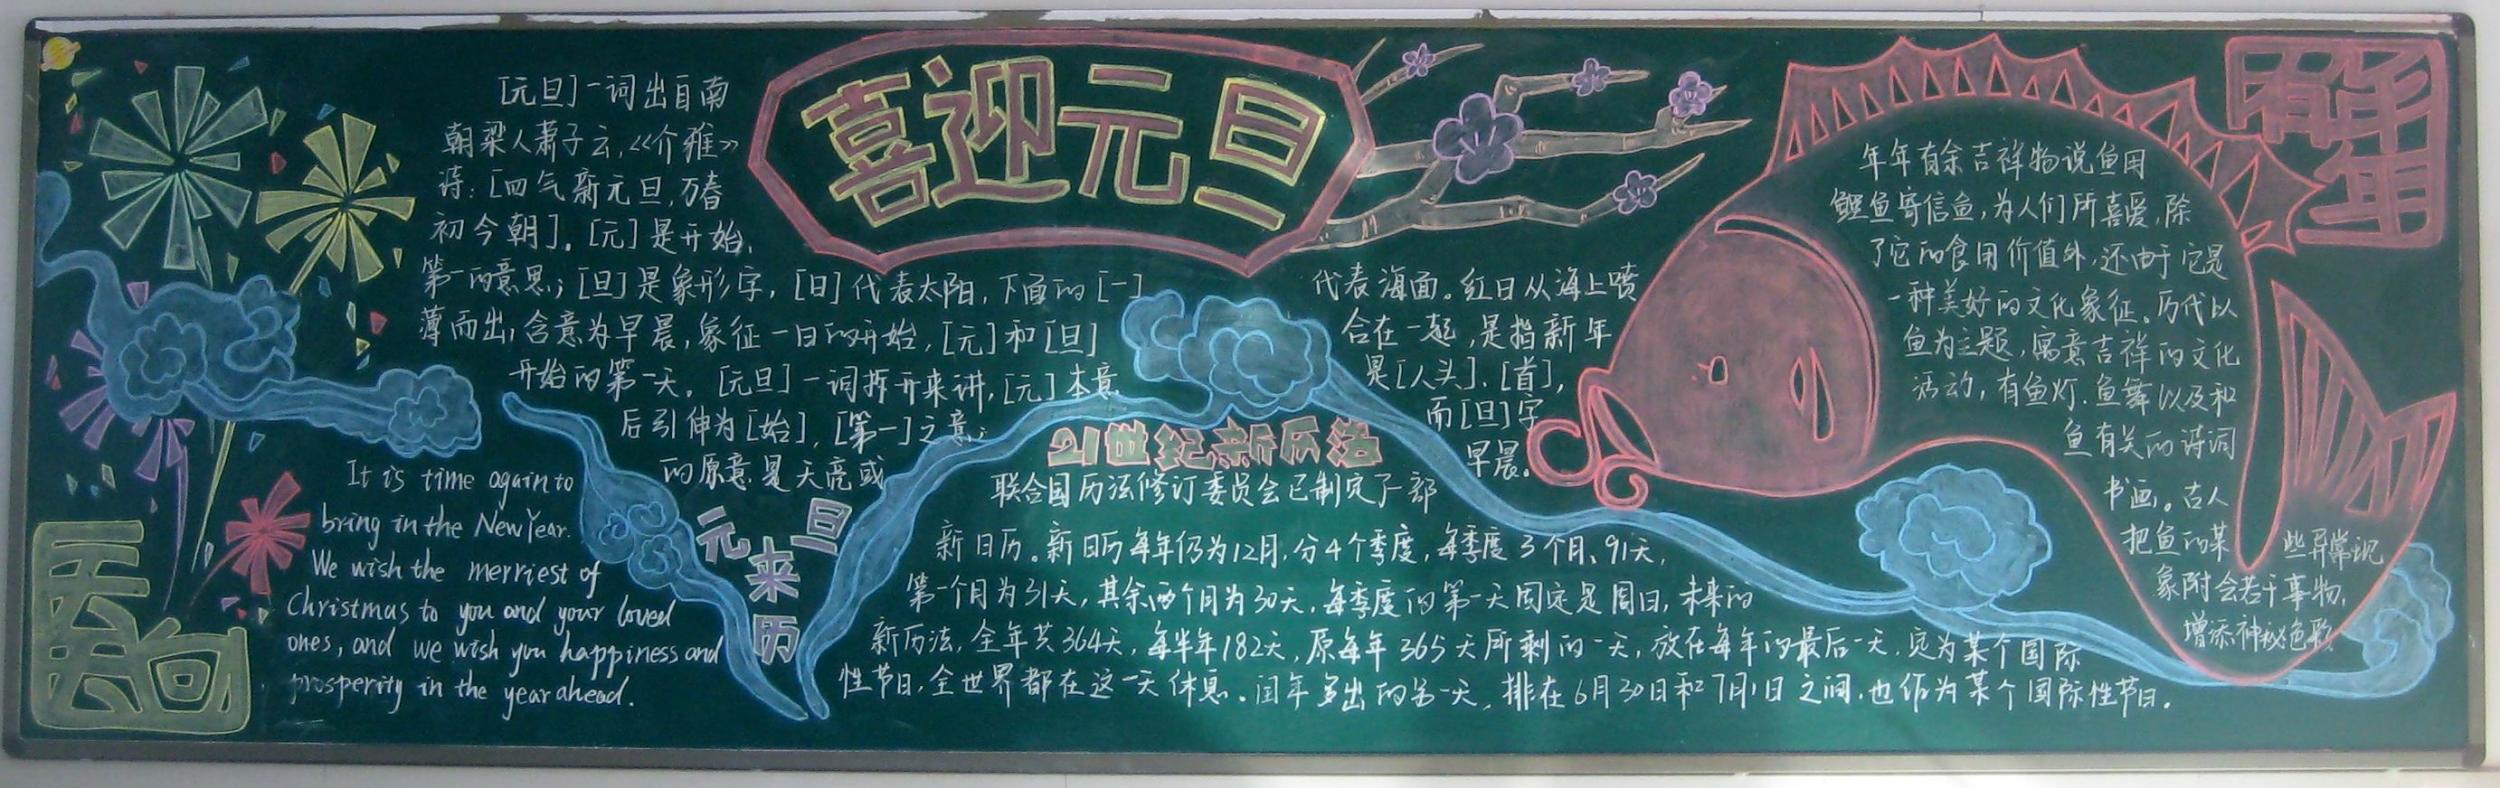 喜迎元旦
[元旦]一词出自南
朝梁人萧子云,《介雅》
诗:[四气新元旦,万春
初今朝]。[元]是开始,
第一的意思;[旦]是象形字,[日]代表太阳,下面的[一]
代表海面。红日从海上喷
薄而出,含意为早晨,象征一日的开始,[元]和[旦]
合在一起,是指新年
开始的第一天。[元旦]一词拆开来讲,[元]本意
是[人头]、[首],
后引伸为[始],[第一]之意;
而[旦]字
的原意是天亮或
早晨。
元旦
来
历
It is time again to
bring in the New Year.
We wish the merriest of
Christmas to you and your loved
ones, and we wish you happiness and
prosperity in the year ahead.
21世纪新历法
联合国历法修订委员会已制定了一部
新日历。新日历每年仍为12月,分4个季度,每季度3个月、91天,
第一个月为31天,其余两个月为30天,每季度的第一天固定是周日,未来的
新历法,全年共364天,每半年182天,原每年365天所剩的一天,放在每年的最后一天,定为某个国际
性节日,全世界都在这一天休息。闰年多出的另一天,排在6月30日和7月1日之间,也作为某个国际性节日。
年年有余吉祥物说鱼用
鲤鱼寄信鱼,为人们所喜爱,除
了它的食用价值外,还由于它是
一种美好的文化象征。历代以
鱼为主题,寓意吉祥的文化
活动,有鱼灯、鱼舞以及和
鱼有关的诗词
书画。古人
把鱼的某些异常现
象附会若干事物,
增添神秘色彩